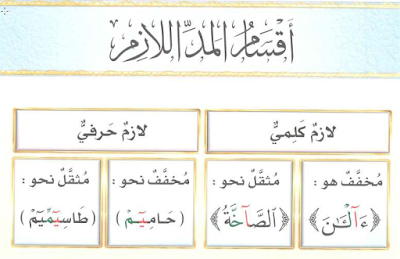 أَقْسَامُ الْمَدِّ اللَّازِمِ
لازمٌ كَلِميٌّ
لازمٌ حَرفيٌّ
مُخفَّفٌ هو :
﴿ءَآلْـَٰٔنَ﴾
مُثقَّلٌ نحو :
﴿ٱلصَّآخَّةُ﴾
مُخفَّفٌ نحو :
(حَـامِـيٓـمْ)
مُثقَّلٌ نحو :
(طَاسِيٓمِّيٓمْ)